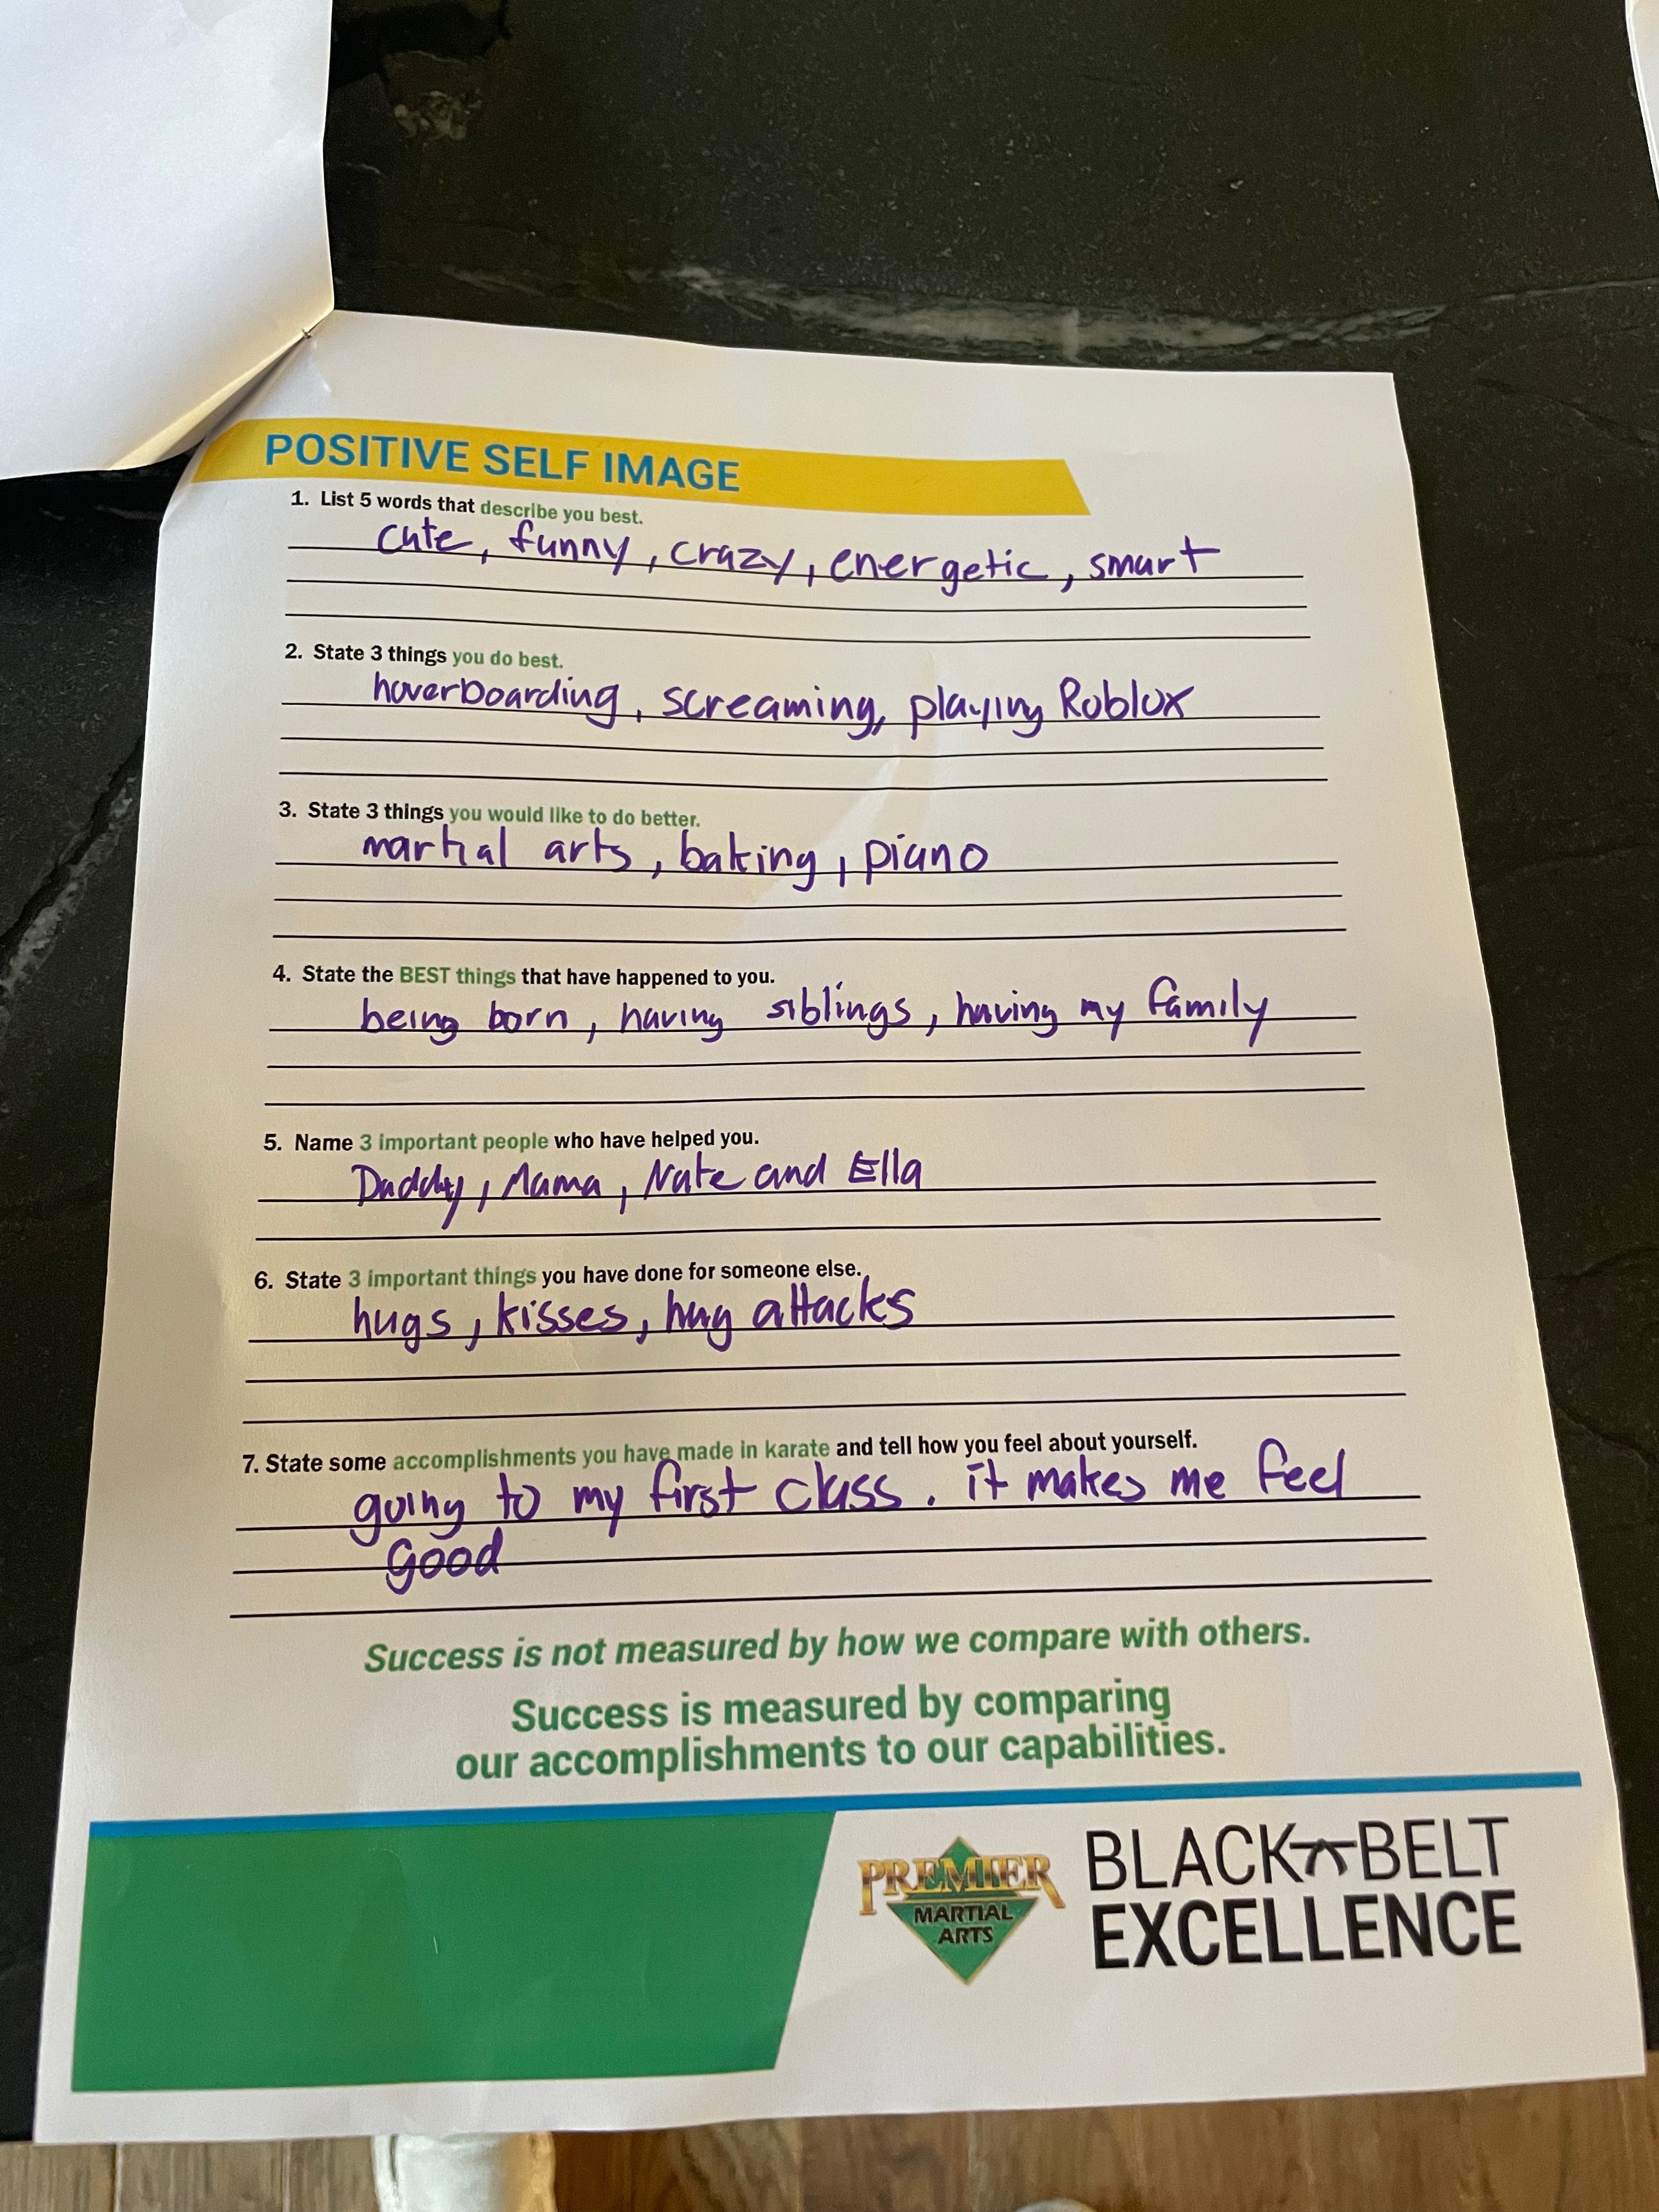 POSITIVE SELF IMAGE
1. List 5 words that describe you best.
cute, funny, crazy, energetic, smart
2. State 3 things you do best.
hoverboarding, screaming, playing Roblox
3. State 3 things you would like to do better.
martial arts, baking, piano
4. State the BEST things that have happened to you.
being born, having siblings, having my family
5. Name 3 important people who have helped you.
Daddy, Mama, Nate and Ella
6. State 3 important things you have done for someone else.
hugs, kisses, hug attacks
7. State some accomplishments you have made in karate and tell how you feel about yourself.
going to my first class. it makes me feel
good
Success is not measured by how we compare with others.
Success is measured by comparing
our accomplishments to our capabilities.
PREMIER
MARTIAL
ARTS
BLACK BELT
EXCELLENCE